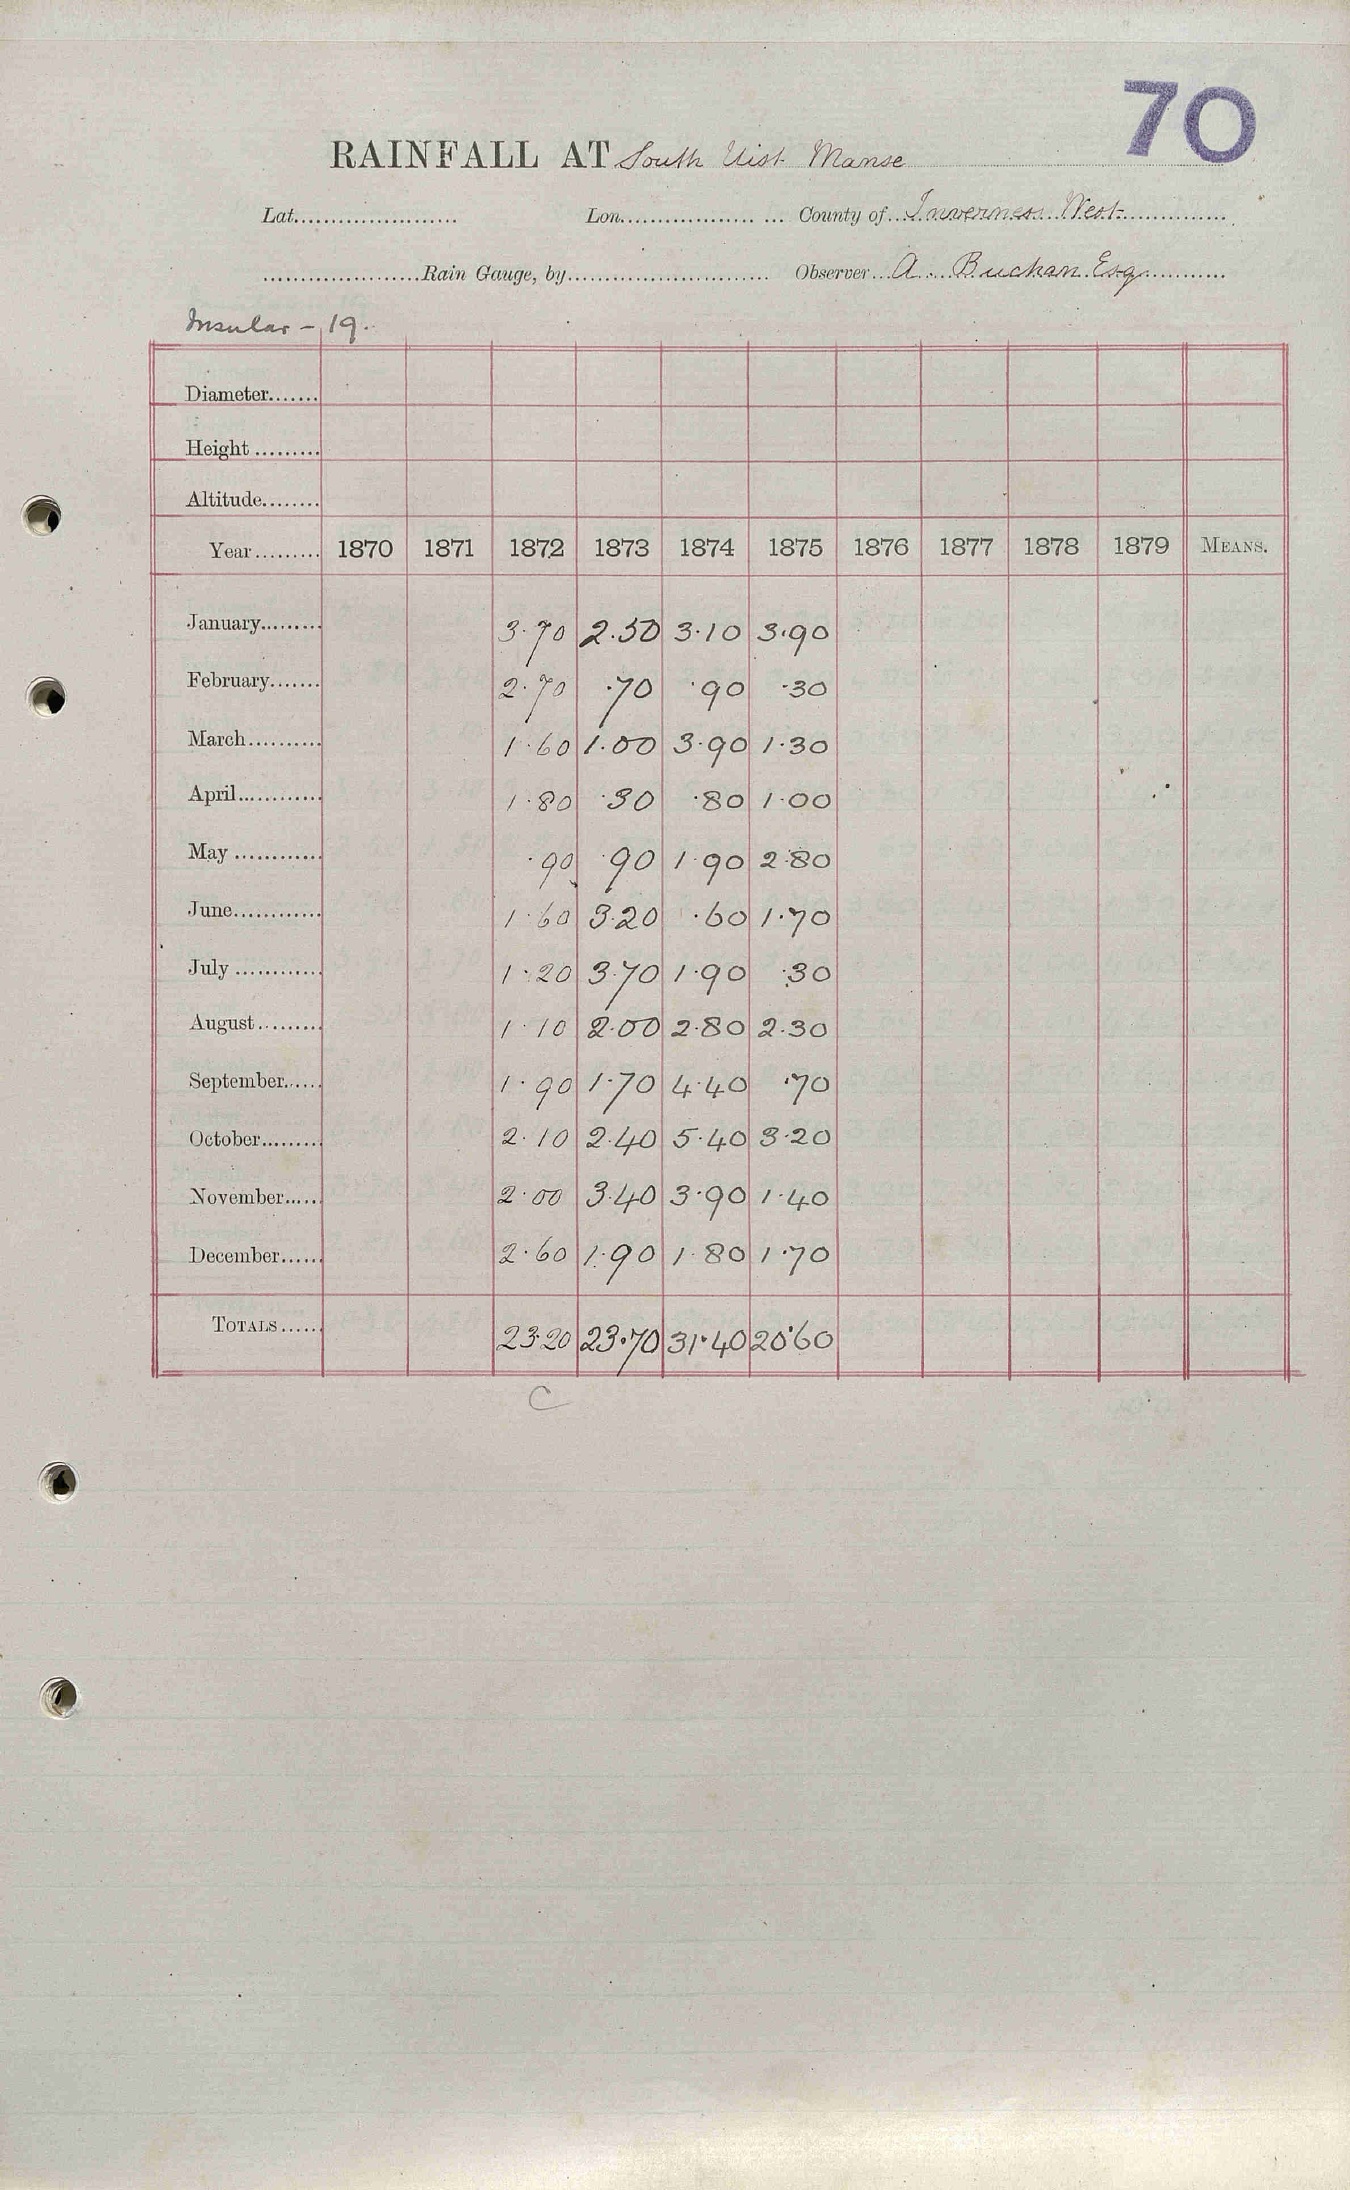 70
RAINFALL AT South Uist Manse
Lat. Lon. County of Inverness West
Rain Gauge, by Observer A. Buchan Esq
Insular - 19.
Diameter
Height
Altitude
Year 1870 1871 1872 1873 1874 1875 1876 1877 1878 1879 MEANS.
January 3.70 2.50 3.10 3.90
February 2.70 .70 .90 .30
March 1.60 1.00 3.90 1.30
April 1.80 .30 .80 1.00
May .90 .90 1.90 2.80
June 1.60 3.20 .60 1.70
July 1.20 3.70 1.90 .30
August 1.10 2.00 2.80 2.30
September 1.90 1.70 4.40 .70
October 2.10 2.40 5.40 3.20
November 2.00 3.40 3.90 1.40
December 2.60 1.90 1.80 1.70
TOTALS 23.20 23.70 31.40 20.60
C